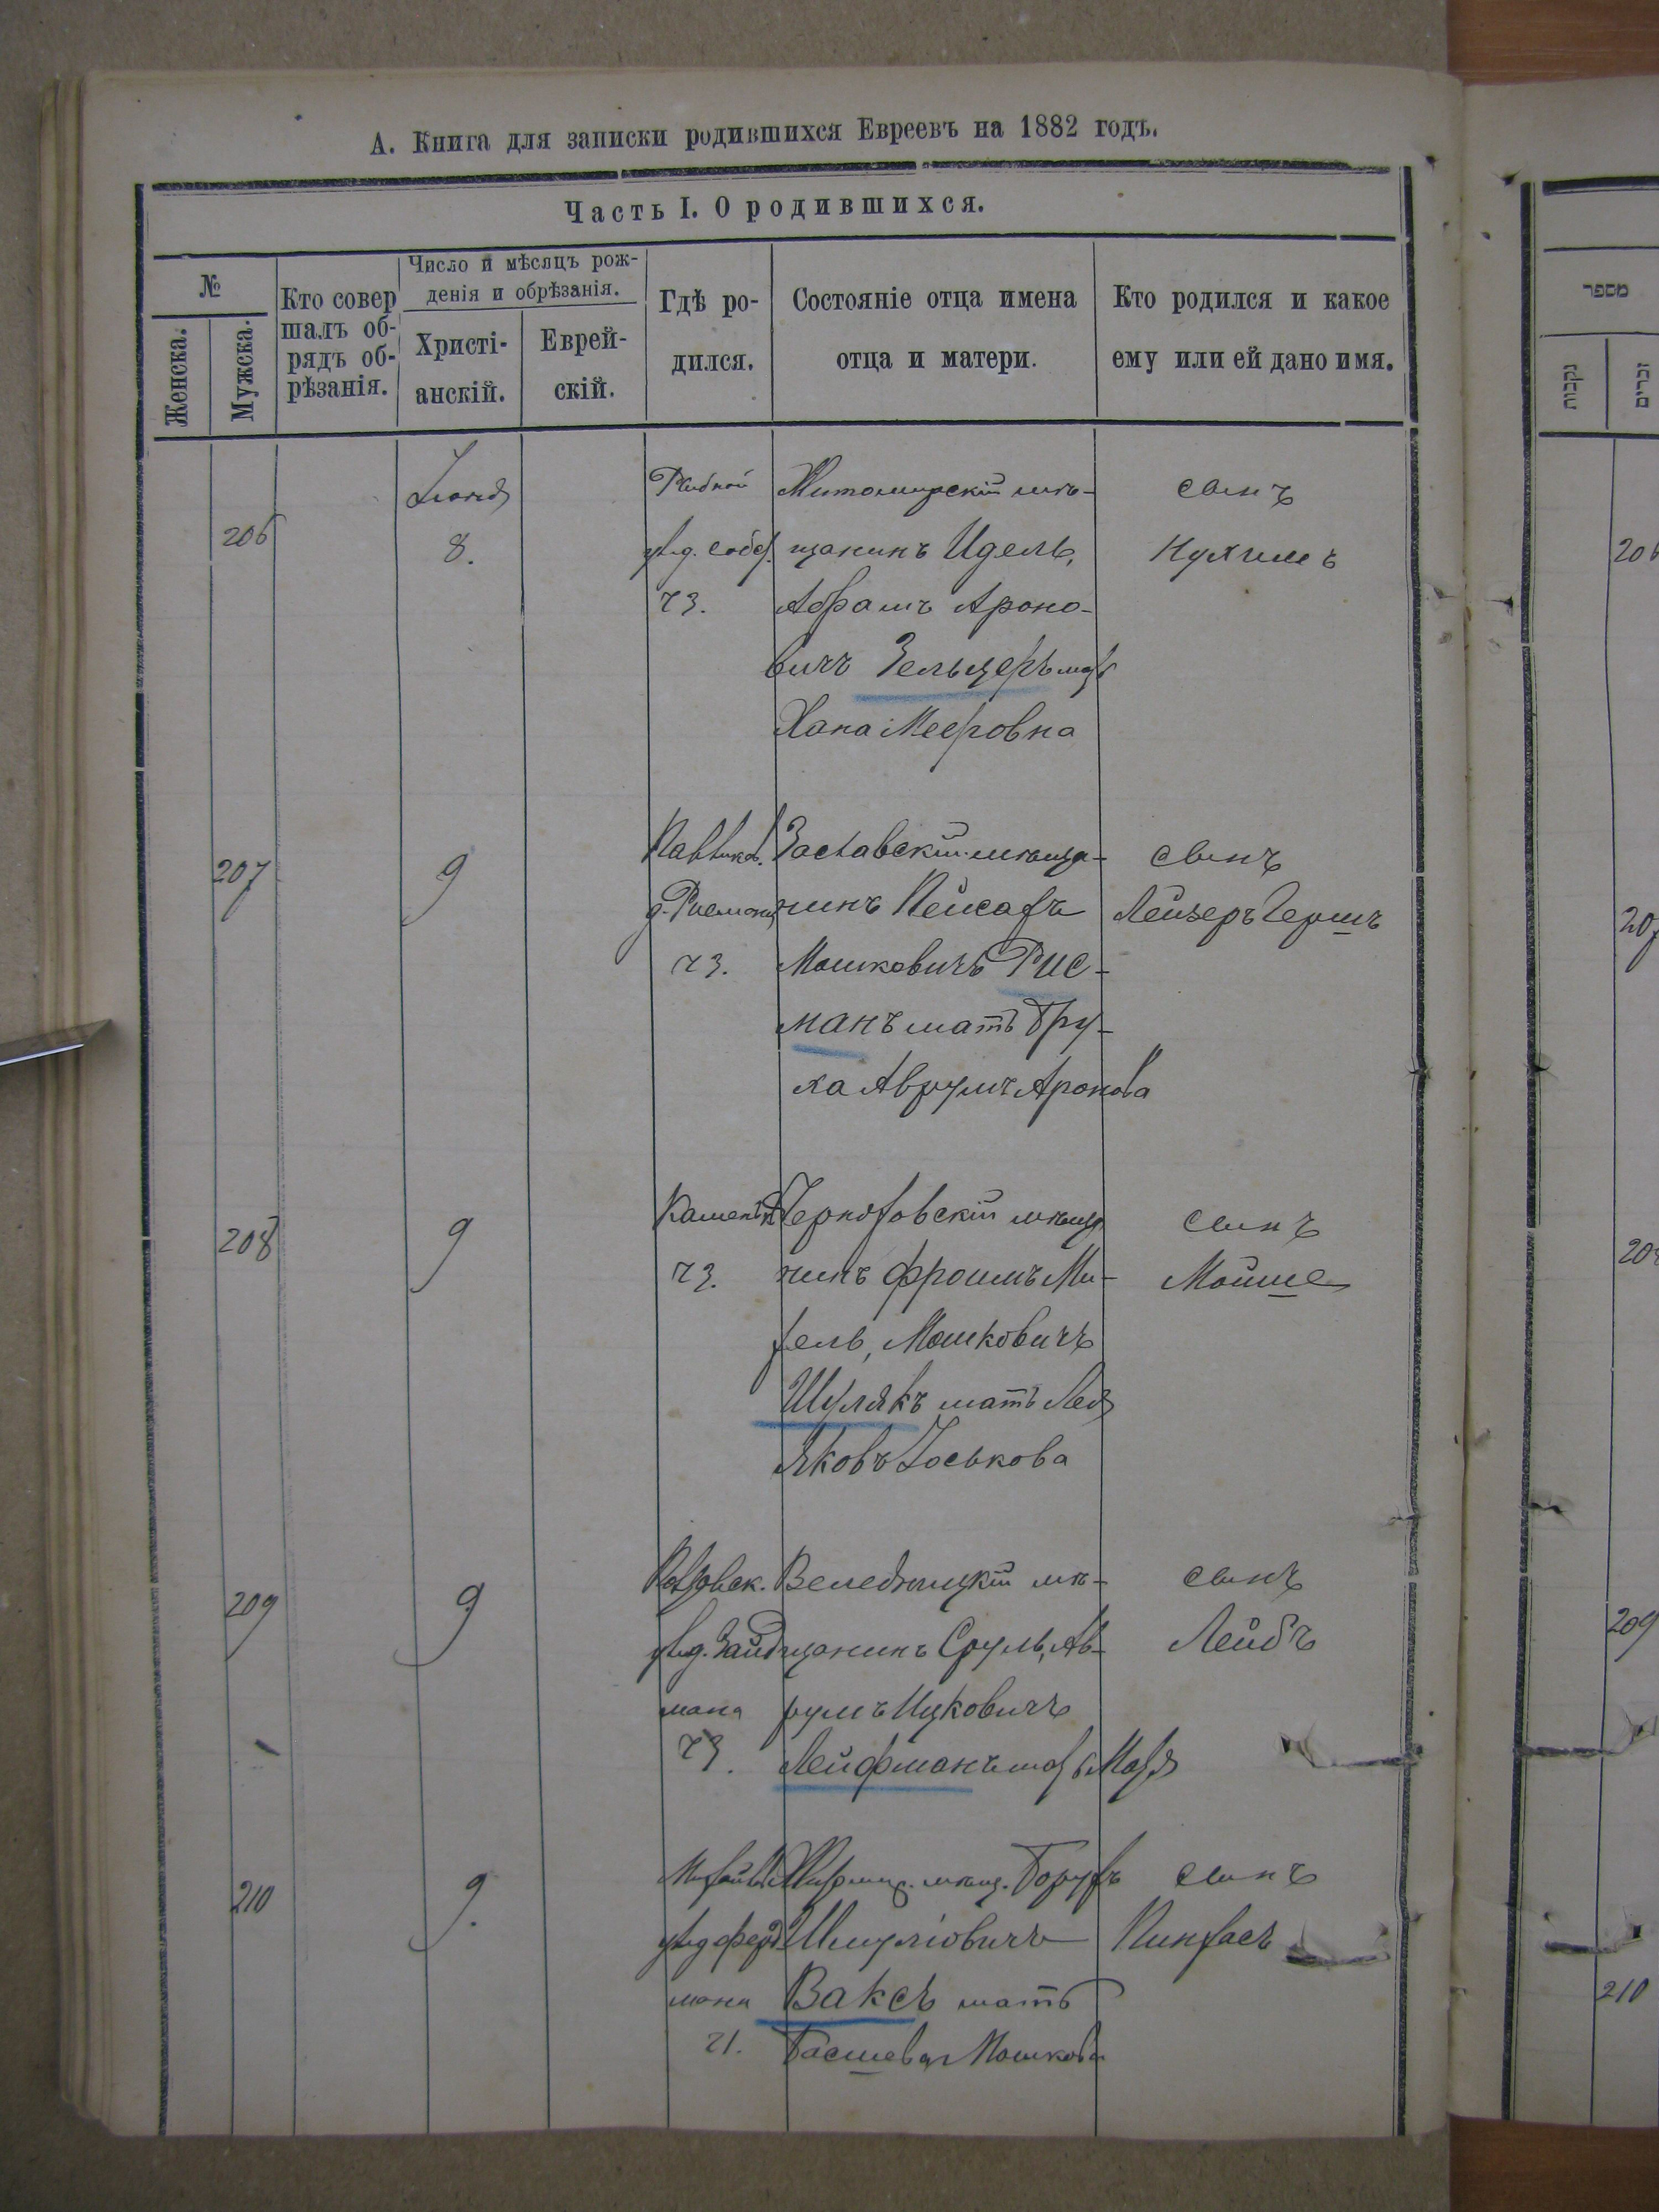 А. Книга для записки родившихся Евреевъ на 1882 годъ.
Часть I. О родившихся.
№
Женска.
Мужска.
Кто совер
шалъ об-
рядъ об-
рѣзанія.
Число и мѣсяцъ рож-
денія и обрѣзанія.
Христі-
анскій.
Еврей-
скій.
Гдѣ ро-
дился.
Состояніе отца имена
отца и матери.
Кто родился и какое
ему или ей дано имя.
מספר
נקבות
זכרים
206
Іюня
8.
Рыбной
ул. д. собс.
ч 3.
Житомирскій мѣ-
щанинъ Идель,
Абрамъ Ароно-
вичъ Зельцеръ мать
Хана Мееровна
сынъ
Нухимъ
206
207
9
д. Рисмана
ч 3.
Заславскій мѣща-
нинъ Пейсахъ
Мошковичъ Рис-
манъ мать Бру-
ха Аврумъ Аронова
сынъ
Лейзеръ Гершъ
207
208
9
ч 3.
Черняховскій мѣща
нинъ Фроимъ Ми-
хель, Мошковичъ
Шулякъ мать Лея
Яковъ Іоськова
сынъ
Мойше
208
209
9
ул. д. Зайд
мана
ч 3.
Веледницкій мѣ-
щанинъ Сруль, Ав-
румъ Ицковичъ
Лейфманъ мать Мотя
сынъ
Лейбъ
209
210
9.
Михайлов
ул. д. Фельд
мана
ч 1.
Житомир. мѣщ. Борухъ
Шмуліовичъ
Ваксъ мать
Басшева Мошкова
сынъ
Пинхасъ
210